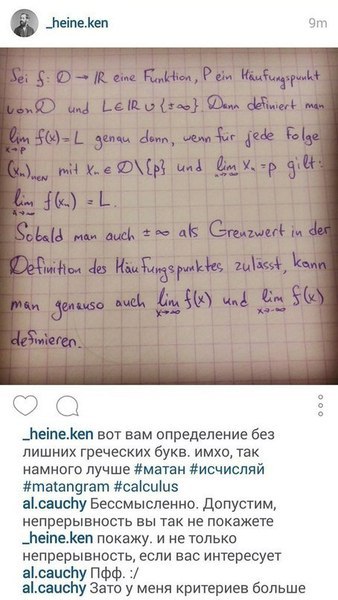 _heine.ken 9m
Sei f: D → ℝ eine Funktion, P ein Häufungspunkt
von D und L∈ℝ ∪ {±∞}. Dann definiert man
lim f(x) = L genau dann, wenn für jede Folge
x→p
(xₙ)n∈N mit xₙ ∈ D\{p} und lim xₙ = p gilt:
n→∞
lim f(xₙ) = L.
n→∞
Sobald man auch ±∞ als Grenzwert in der
Definition des Häufungspunktes zulässt, kann
man genauso auch lim f(x) und lim f(x)
x→∞ x→-∞
definieren.
_heine.ken вот вам определение без
лишних греческих букв. имхо, так
намного лучше #матан #исчисляй
#matangram #calculus
al.cauchy Бессмысленно. Допустим,
непрерывность вы так не покажете
_heine.ken покажу. и не только
непрерывность, если вас интересует
al.cauchy Пфф. :/
al.cauchy Зато у меня критериев больше